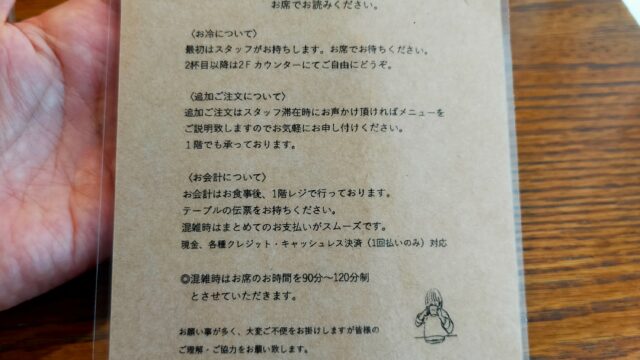 お席でお読みください。
〈お冷について〉
最初はスタッフがお持ちします。お席でお待ちください。
2杯目以降は2Fカウンターにてご自由にどうぞ。
〈追加ご注文について〉
追加ご注文はスタッフ滞在時にお声かけ頂ければメニューを
ご説明致しますのでお気軽にお申し付けください。
1階でも承っております。
〈お会計について〉
お会計はお食事後、1階レジで行っております。
テーブルの伝票をお持ちください。
混雑時はまとめてのお支払いがスムーズです。
現金、各種クレジット・キャッシュレス決済（1回払いのみ）対応
◎混雑時はお席のお時間を90分～120分制
とさせていただきます。
お願い事が多く、大変ご不便をお掛けしますが皆様の
ご理解・ご協力をお願い致します。